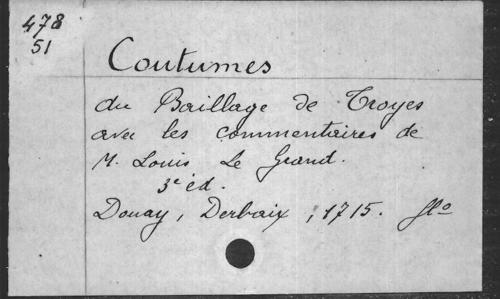 478
51
Coutumes
du Baillage de Troyes
avec les commentaires de
M. Louis Le Grand.
3e éd.
Douay, Derbaix, 1715. flo